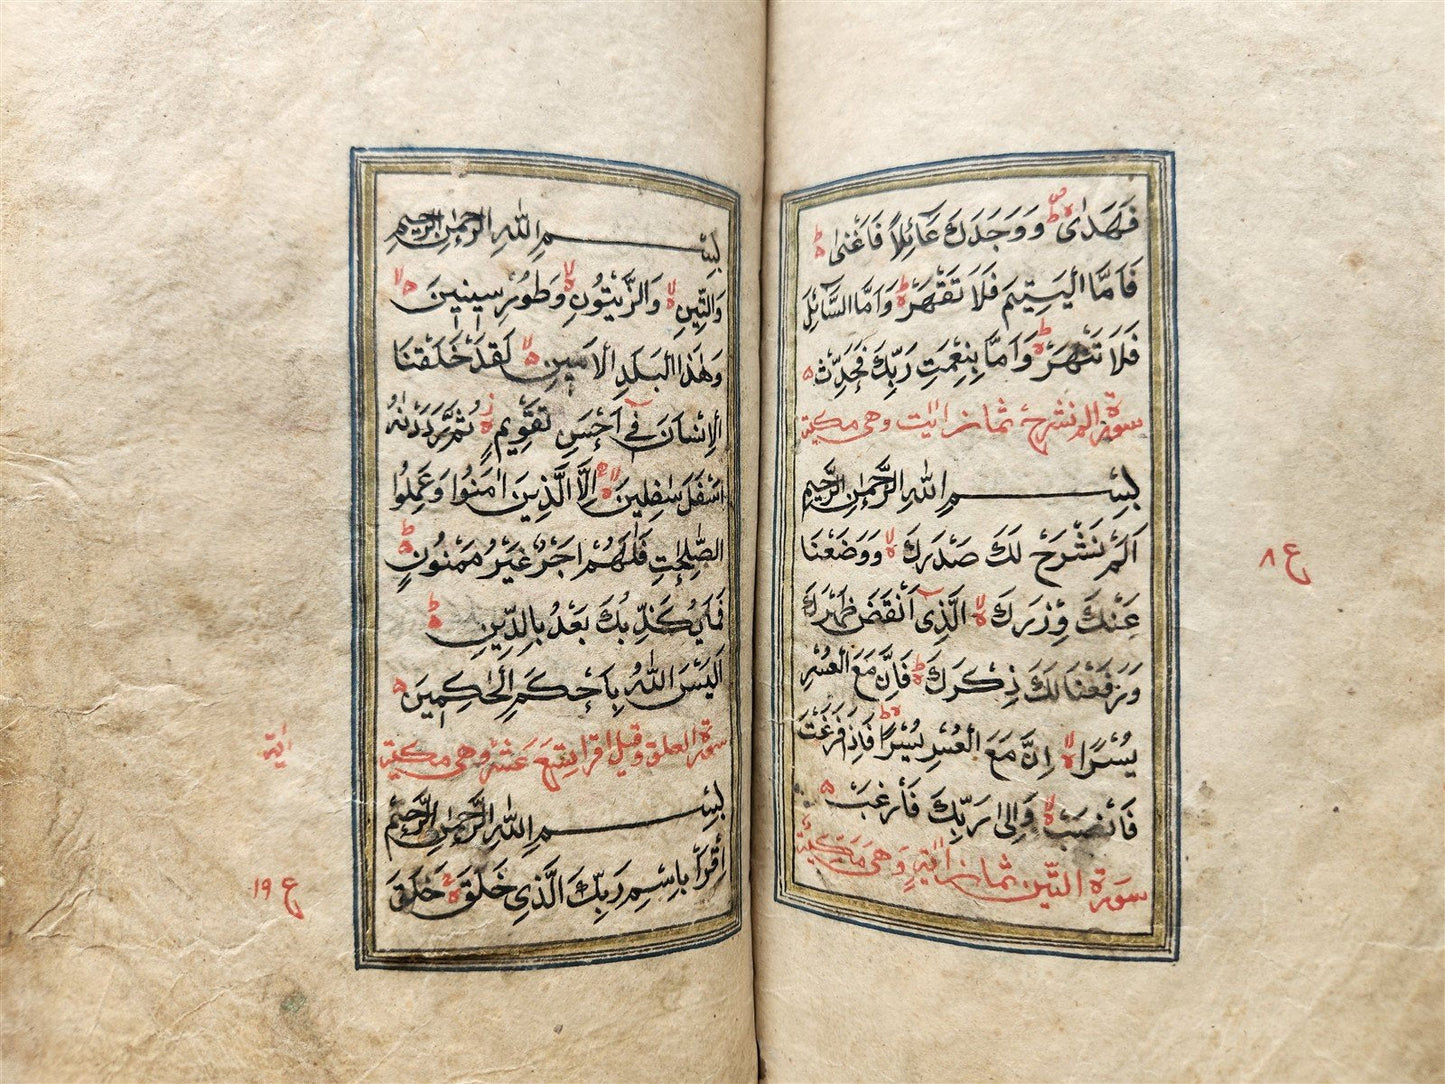 فَهَدٰى وَوَجَدَكَ عَائِلًا فَاَغْنٰى
فَاَمَّا الْيَتِيْمَ فَلَا تَقْهَرْ وَاَمَّا السَّائِلَ
فَلَا تَنْهَرْ وَاَمَّا بِنِعْمَتِ رَبِّكَ فَحَدِّثْ
سورة الم نشرح ثمان اٰيت وهى مكية
بِسْمِ اللّٰهِ الرَّحْمٰنِ الرَّحِيْمِ
اَلَمْ نَشْرَحْ لَكَ صَدْرَكَ وَوَضَعْنَا
عَنْكَ وِزْرَكَ الَّذِى اَنْقَضَ ظَهْرَكَ
وَرَفَعْنَا لَكَ ذِكْرَكَ فَاِنَّ مَعَ الْعُسْرِ
يُسْرًا اِنَّ مَعَ الْعُسْرِ يُسْرًا فَاِذَا فَرَغْتَ
فَانْصَبْ وَاِلٰى رَبِّكَ فَارْغَبْ
سورة التين ثمان اٰية وهى مكية
ع ٨
بِسْمِ اللّٰهِ الرَّحْمٰنِ الرَّحِيْمِ
وَالتِّيْنِ وَالزَّيْتُوْنِ وَطُوْرِ سِيْنِيْنَ
وَهٰذَا الْبَلَدِ الْاَمِيْنِ لَقَدْ خَلَقْنَا
الْاِنْسَانَ فِىْ اَحْسَنِ تَقْوِيْمٍ ثُمَّ رَدَدْنٰهُ
اَسْفَلَ سٰفِلِيْنَ اِلَّا الَّذِيْنَ اٰمَنُوْا وَعَمِلُوا
الصّٰلِحٰتِ فَلَهُمْ اَجْرٌ غَيْرُ مَمْنُوْنٍ
فَمَا يُكَذِّبُكَ بَعْدُ بِالدِّيْنِ
اَلَيْسَ اللّٰهُ بِاَحْكَمِ الْحَاكِمِيْنَ
سورة العلق وقيل اقرا تسع عشر وهى مكية
اٰية
بِسْمِ اللّٰهِ الرَّحْمٰنِ الرَّحِيْمِ
اِقْرَاْ بِاسْمِ رَبِّكَ الَّذِىْ خَلَقَ خَلَقَ
ع ١٩